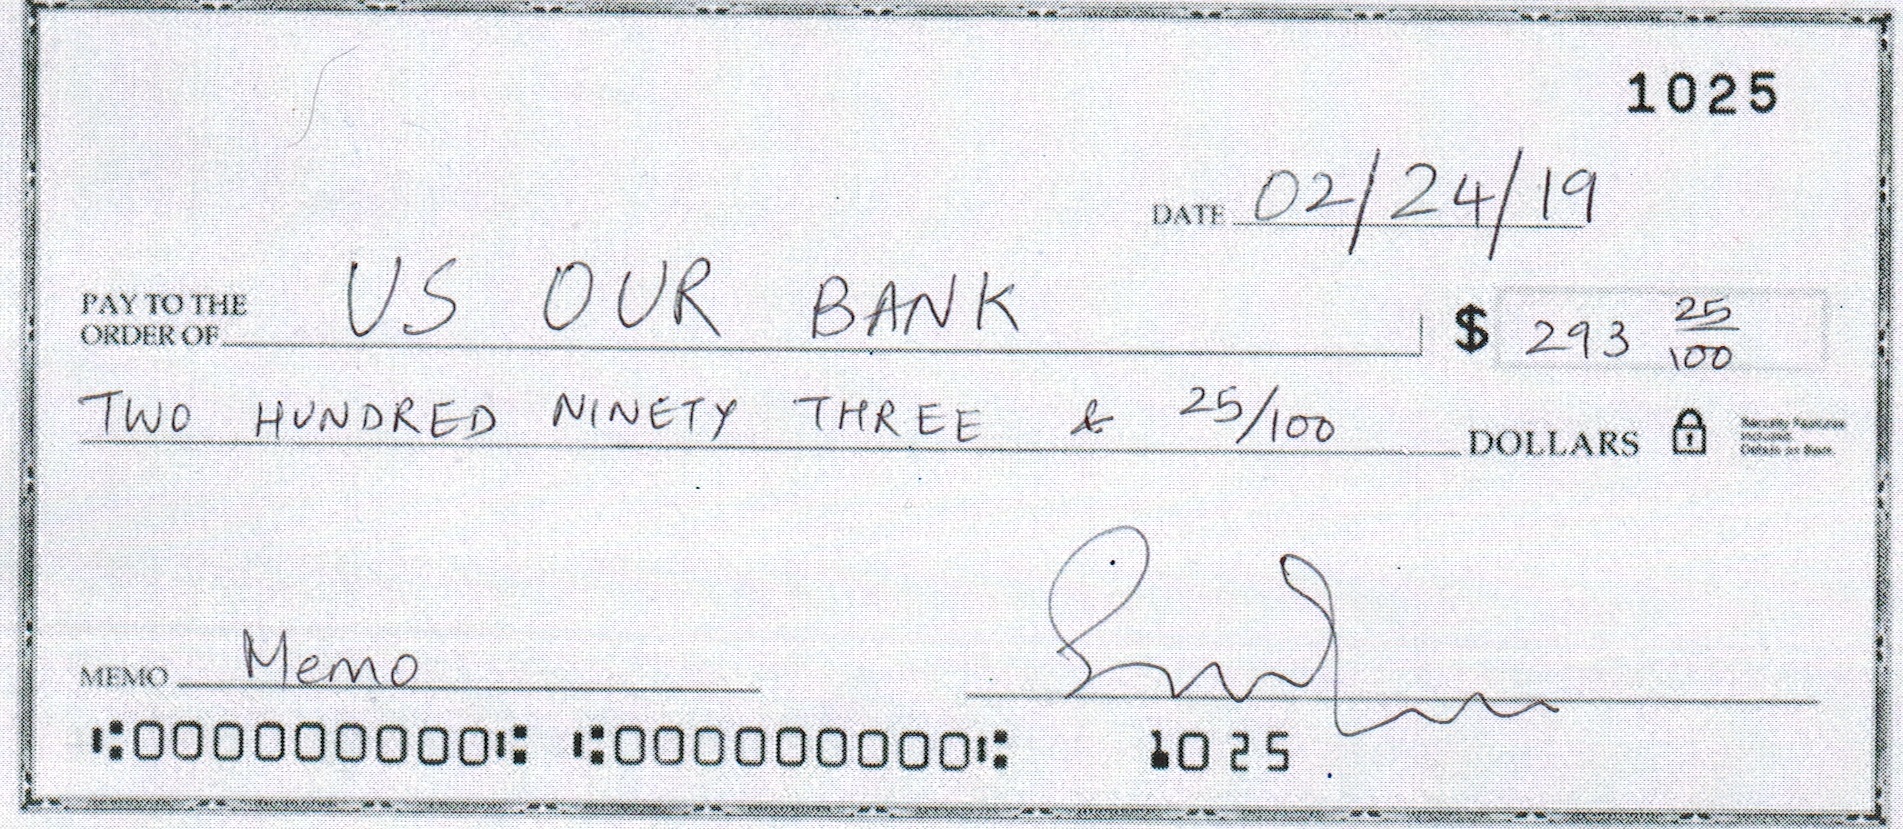 1025
DATE 02/24/19
PAY TO THE
ORDER OF US OUR BANK $ 293 25/100
TWO HUNDRED NINETY THREE & 25/100 DOLLARS
Security Features
Included.
Details on Back.
MEMO Memo
⑆000000000⑆ ⑆000000000⑆ 1025